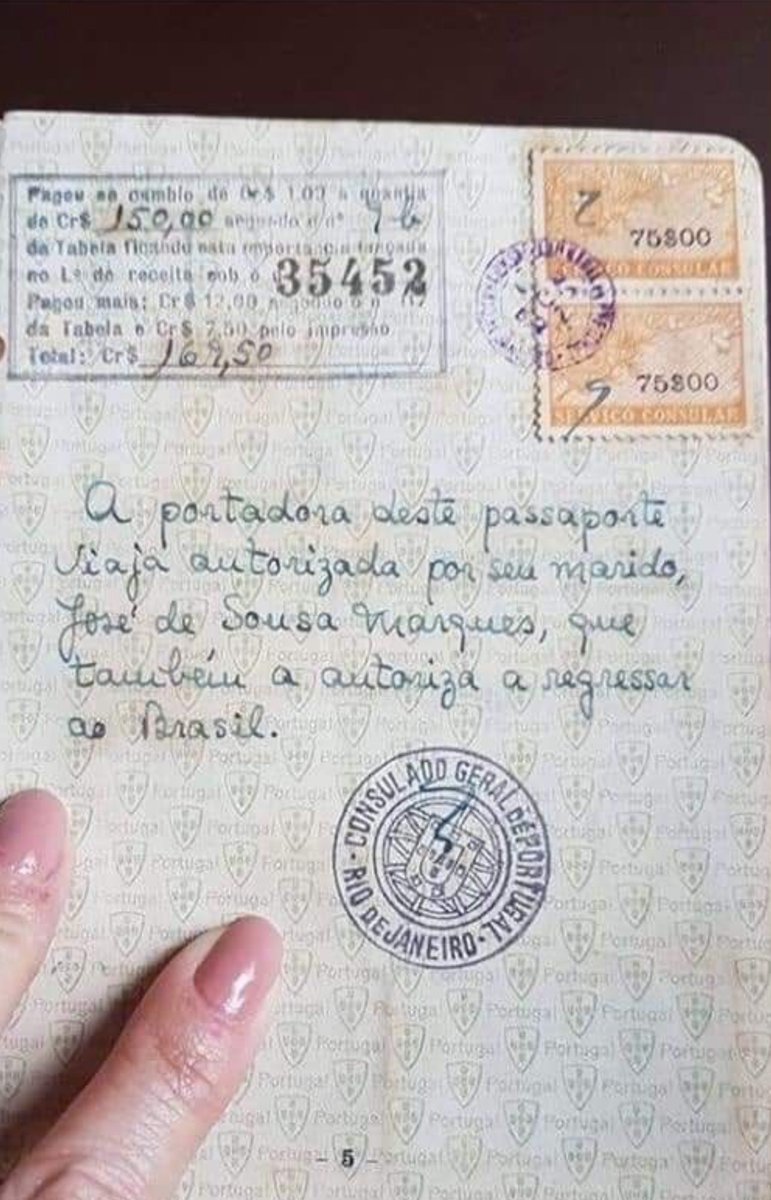 Pagou ao cambio de Cr$ 1.00 a quantia
de Cr$ 150,00 segundo o nº 96
da Tabela ficando esta importancia lançada
no L.º de receita sob o nº 35452
Pagou mais: Cr$ 12,00 segundo o nº
da Tabela e Cr$ 7,50 pelo impresso
Total: Cr$ 169,50
75$00
SERVIÇO CONSULAR
75$00
SERVIÇO CONSULAR
A portadora deste passaporte
viaja autorizada por seu marido,
José de Sousa Marques, que
também a autoriza a regressar
ao Brasil.
CONSULADO GERAL DE PORTUGAL
RIO DE JANEIRO
- 5 -